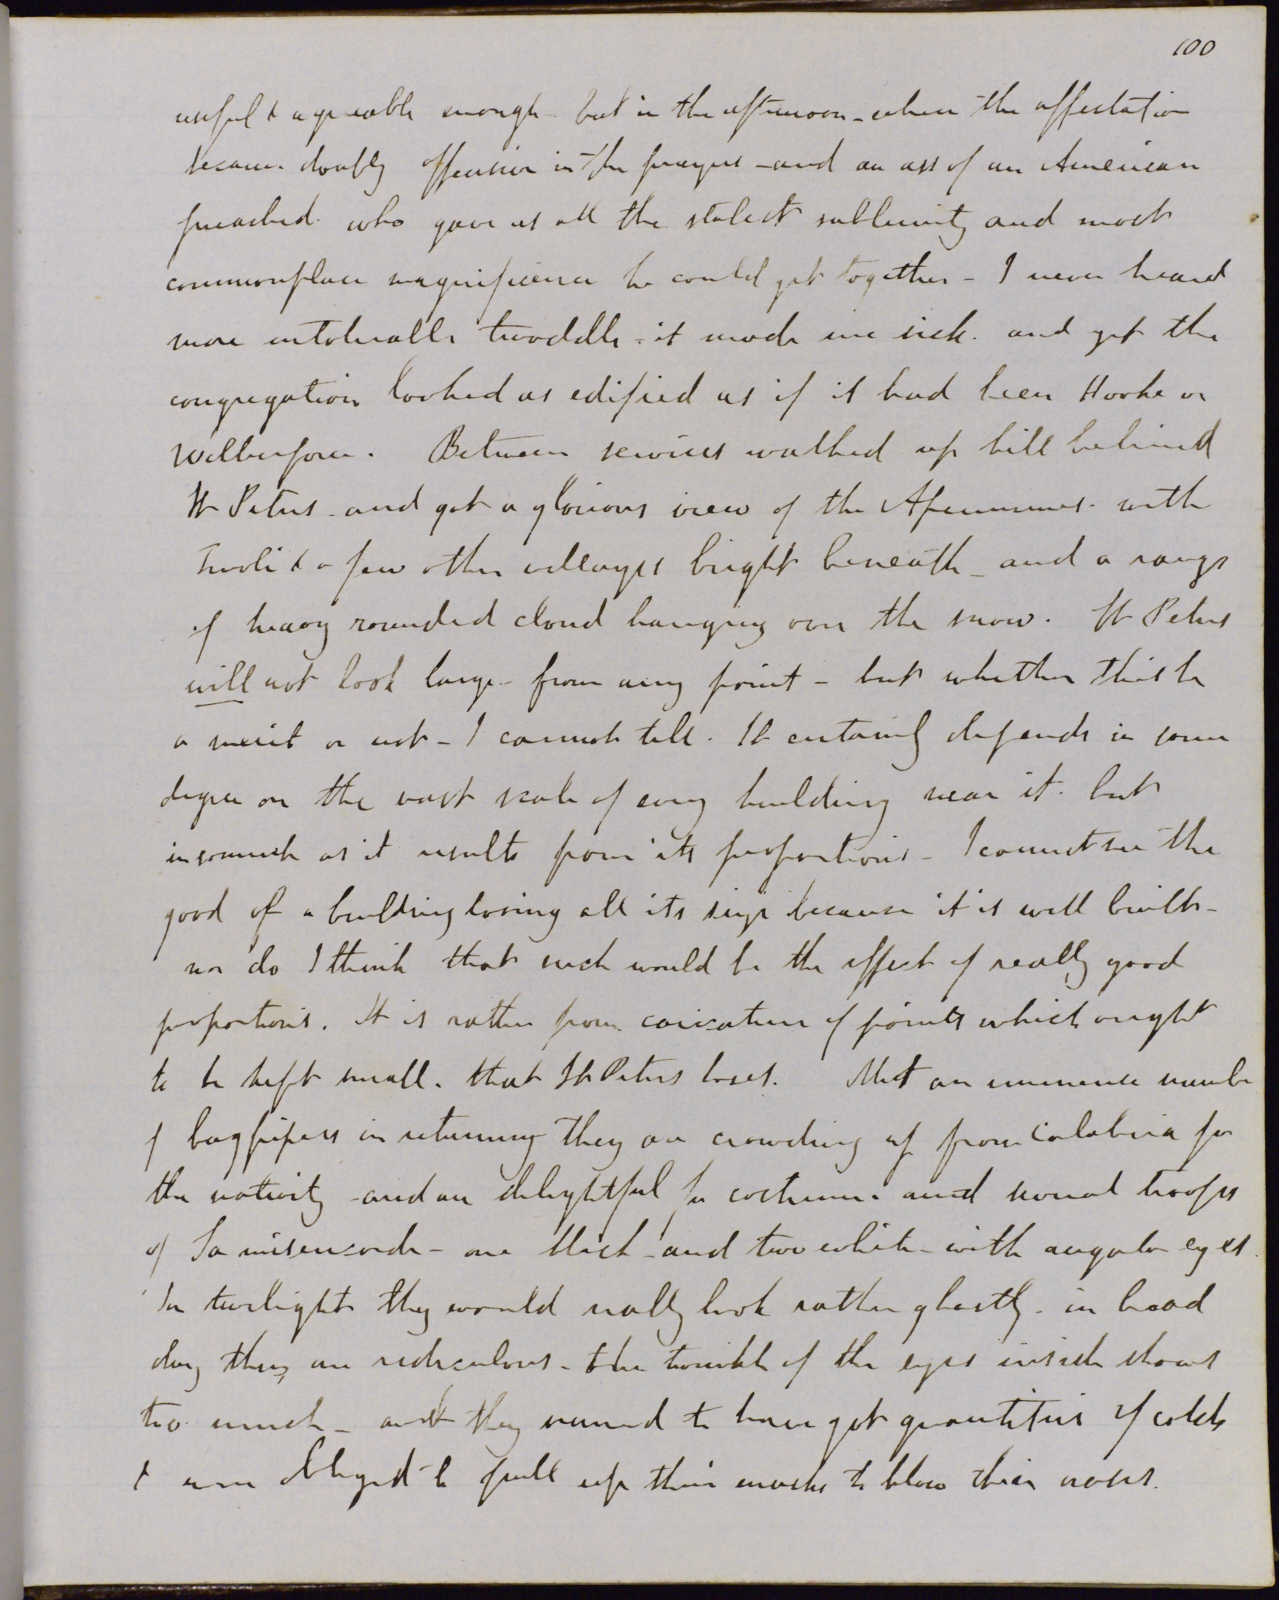 100
useful & agreeable enough - but in the afternoon - when the affectation
became doubly offensive in the prayers - and an ass of an American
preached who gave us all the stalest sublimity and most
commonplace magnificence he could get together - I never heard
more intolerable twaddle - it made me sick. and yet the
congregation looked as edified as if it had been Hooke or
Wilberforce. Between services walked up hill behind
St Peters - and got a glorious view of the Apennines - with
Tivoli & a few other villages bright beneath - and a range
of heavy rounded cloud hanging over the snow. St Peters
will not look large - from any point - but whether this be
a merit or not - I cannot tell. It certainly depends in some
degree on the vast scale of every building near it. but
insomuch as it results from its proportions - I cannot see the
good of a building losing all its size because it is well built -
nor do I think that such would be the effect of really good
proportions. It is rather from caricature of points which ought
to be kept small. that St Peters loses. Met an immense numbe
of bagpipers in returning they are crowding up from Calabria for
the nativity - and are delightful for costume and several troops
of La misericorde - one black - and two white - with angular eyes.
In twilight they would really look rather ghastly - in broad
day they are ridiculous - the twinkle of the eyes inside shows
too much - and they seemed to have got quantities of colds
& were obliged to pull up their masks to blow their noses.